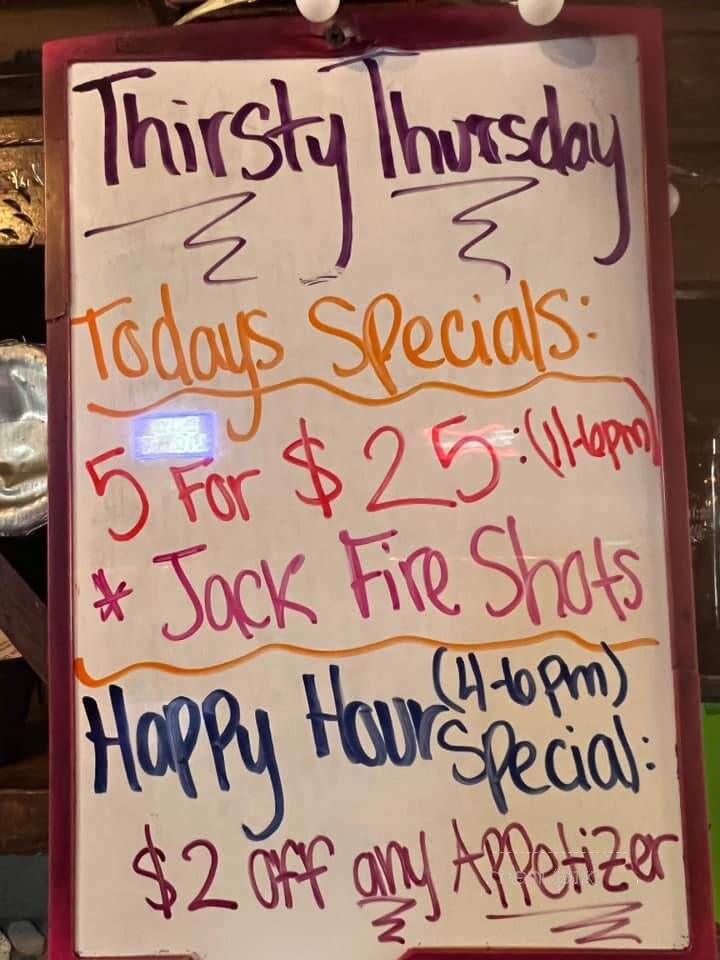 Thirsty Thursday
Todays Specials:
5 For $25: (11-6pm)
* Jack Fire Shots
Happy Hour (4-6pm)
Special:
$2 off any Appetizer